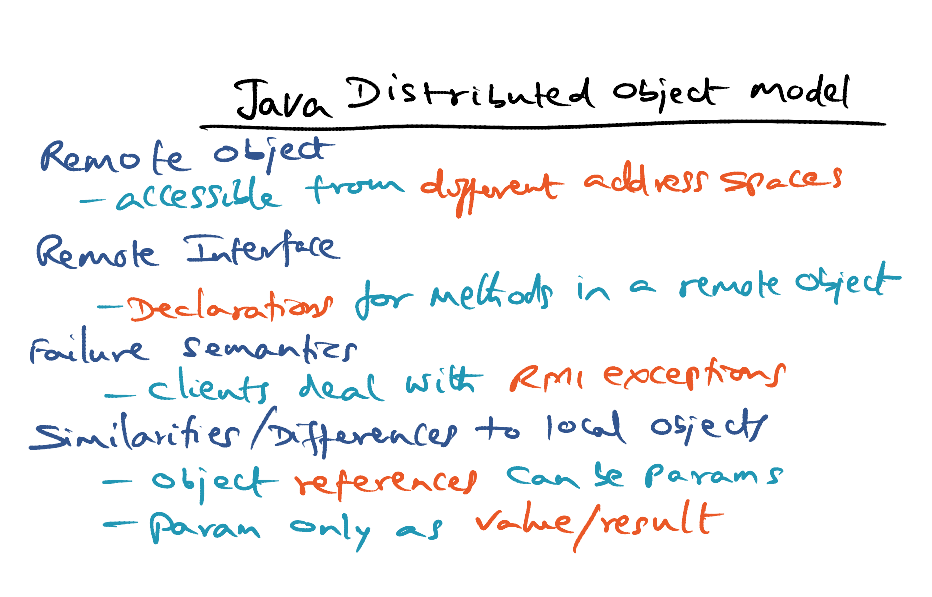 Java Distributed Object model
Remote object
- accessible from different address spaces
Remote Interface
- Declarations for methods in a remote object
Failure semantics
- clients deal with RMI exceptions
Similarities/Differences to local objects
- object references can be params
- Param only as value/result